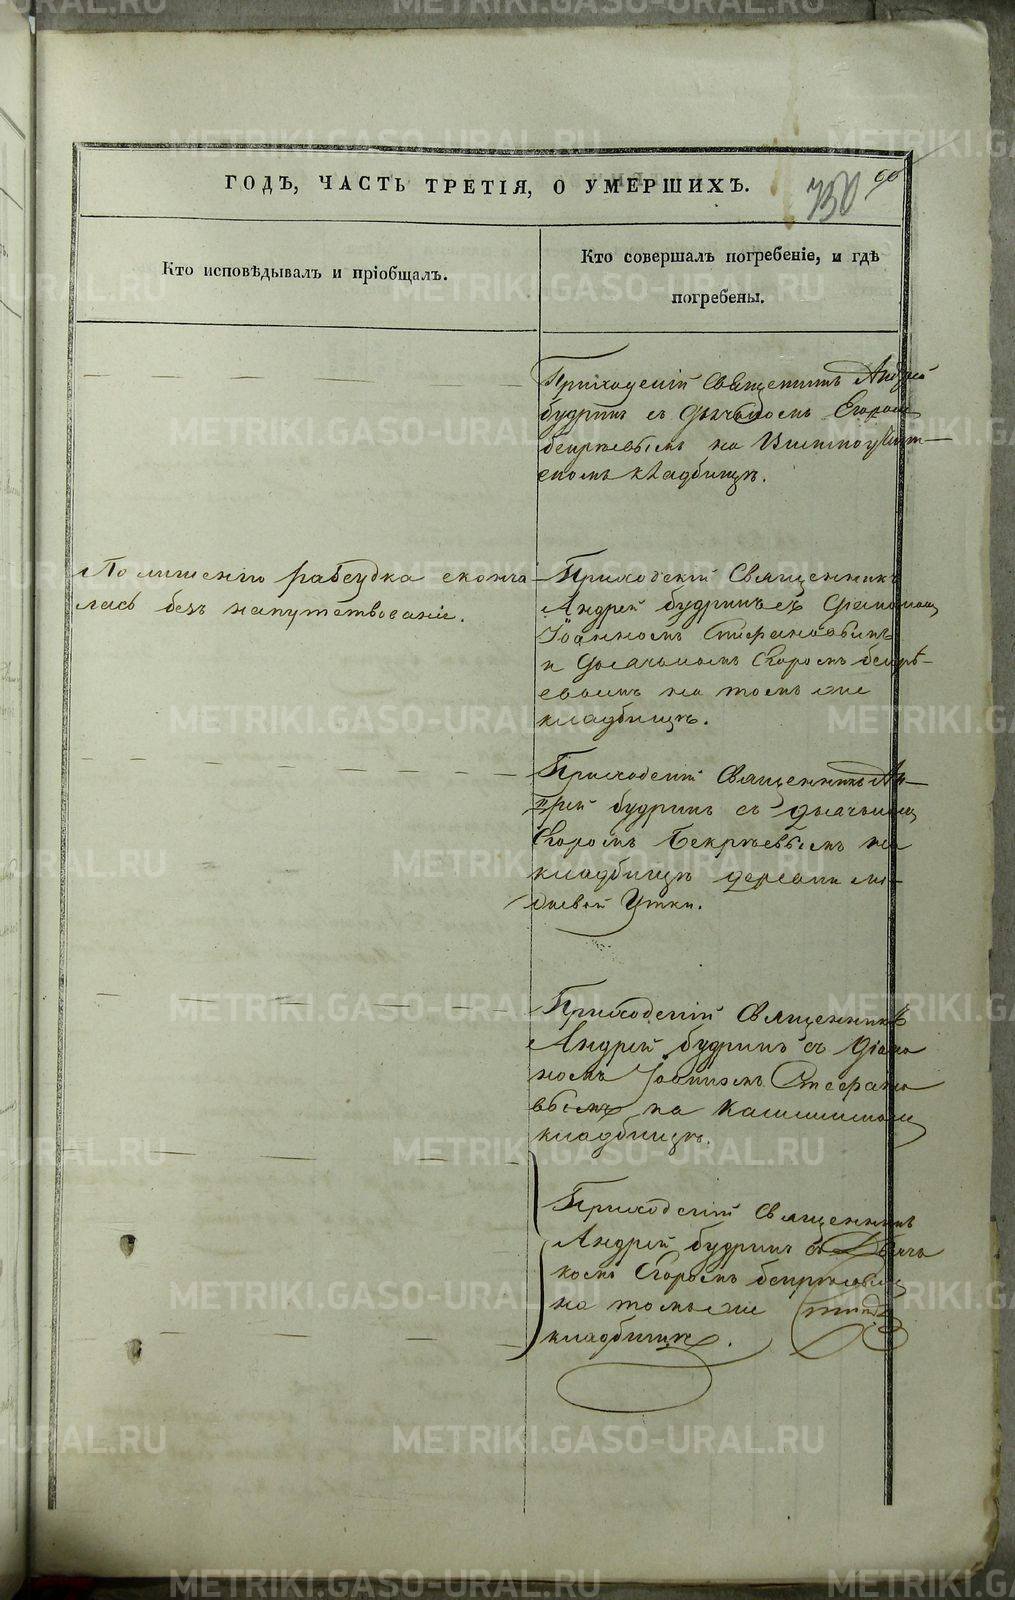 ГОДЪ, ЧАСТЬ ТРЕТІЯ, О УМЕРШИХЪ.
750
90
Кто исповѣдывалъ и пріобщалъ.
Кто совершалъ погребеніе, и гдѣ
погребены.
Приходскій Священникъ Андрей
Будринъ съ Дьячкомъ Егоромъ
Бекрѣевымъ на
скомъ кладбищѣ.
По лишенію разсудка сконча
лась безъ напутствованія.
Приходскій Священникъ
Андрей Будринъ съ Діакономъ
Іоанномъ Стефановымъ
и Дьячкомъ Егоромъ Бекрѣ-
евымъ на томъ же
кладбищѣ.
Приходскій Священникъ Ан-
дрей Будринъ съ Дьячкомъ
Егоромъ Бекрѣевымъ на
кладбищѣ деревни
Утки.
Приходскій Священникъ
Андрей Будринъ съ Діако
номъ Іоанномъ Стефано
вымъ на
кладбищѣ.
Приходскій Священникъ
Андрей Будринъ съ Дьяч
комъ Егоромъ Бекрѣевымъ
на томъ же
кладбищѣ.
METRIKI.GASO-URAL.RU